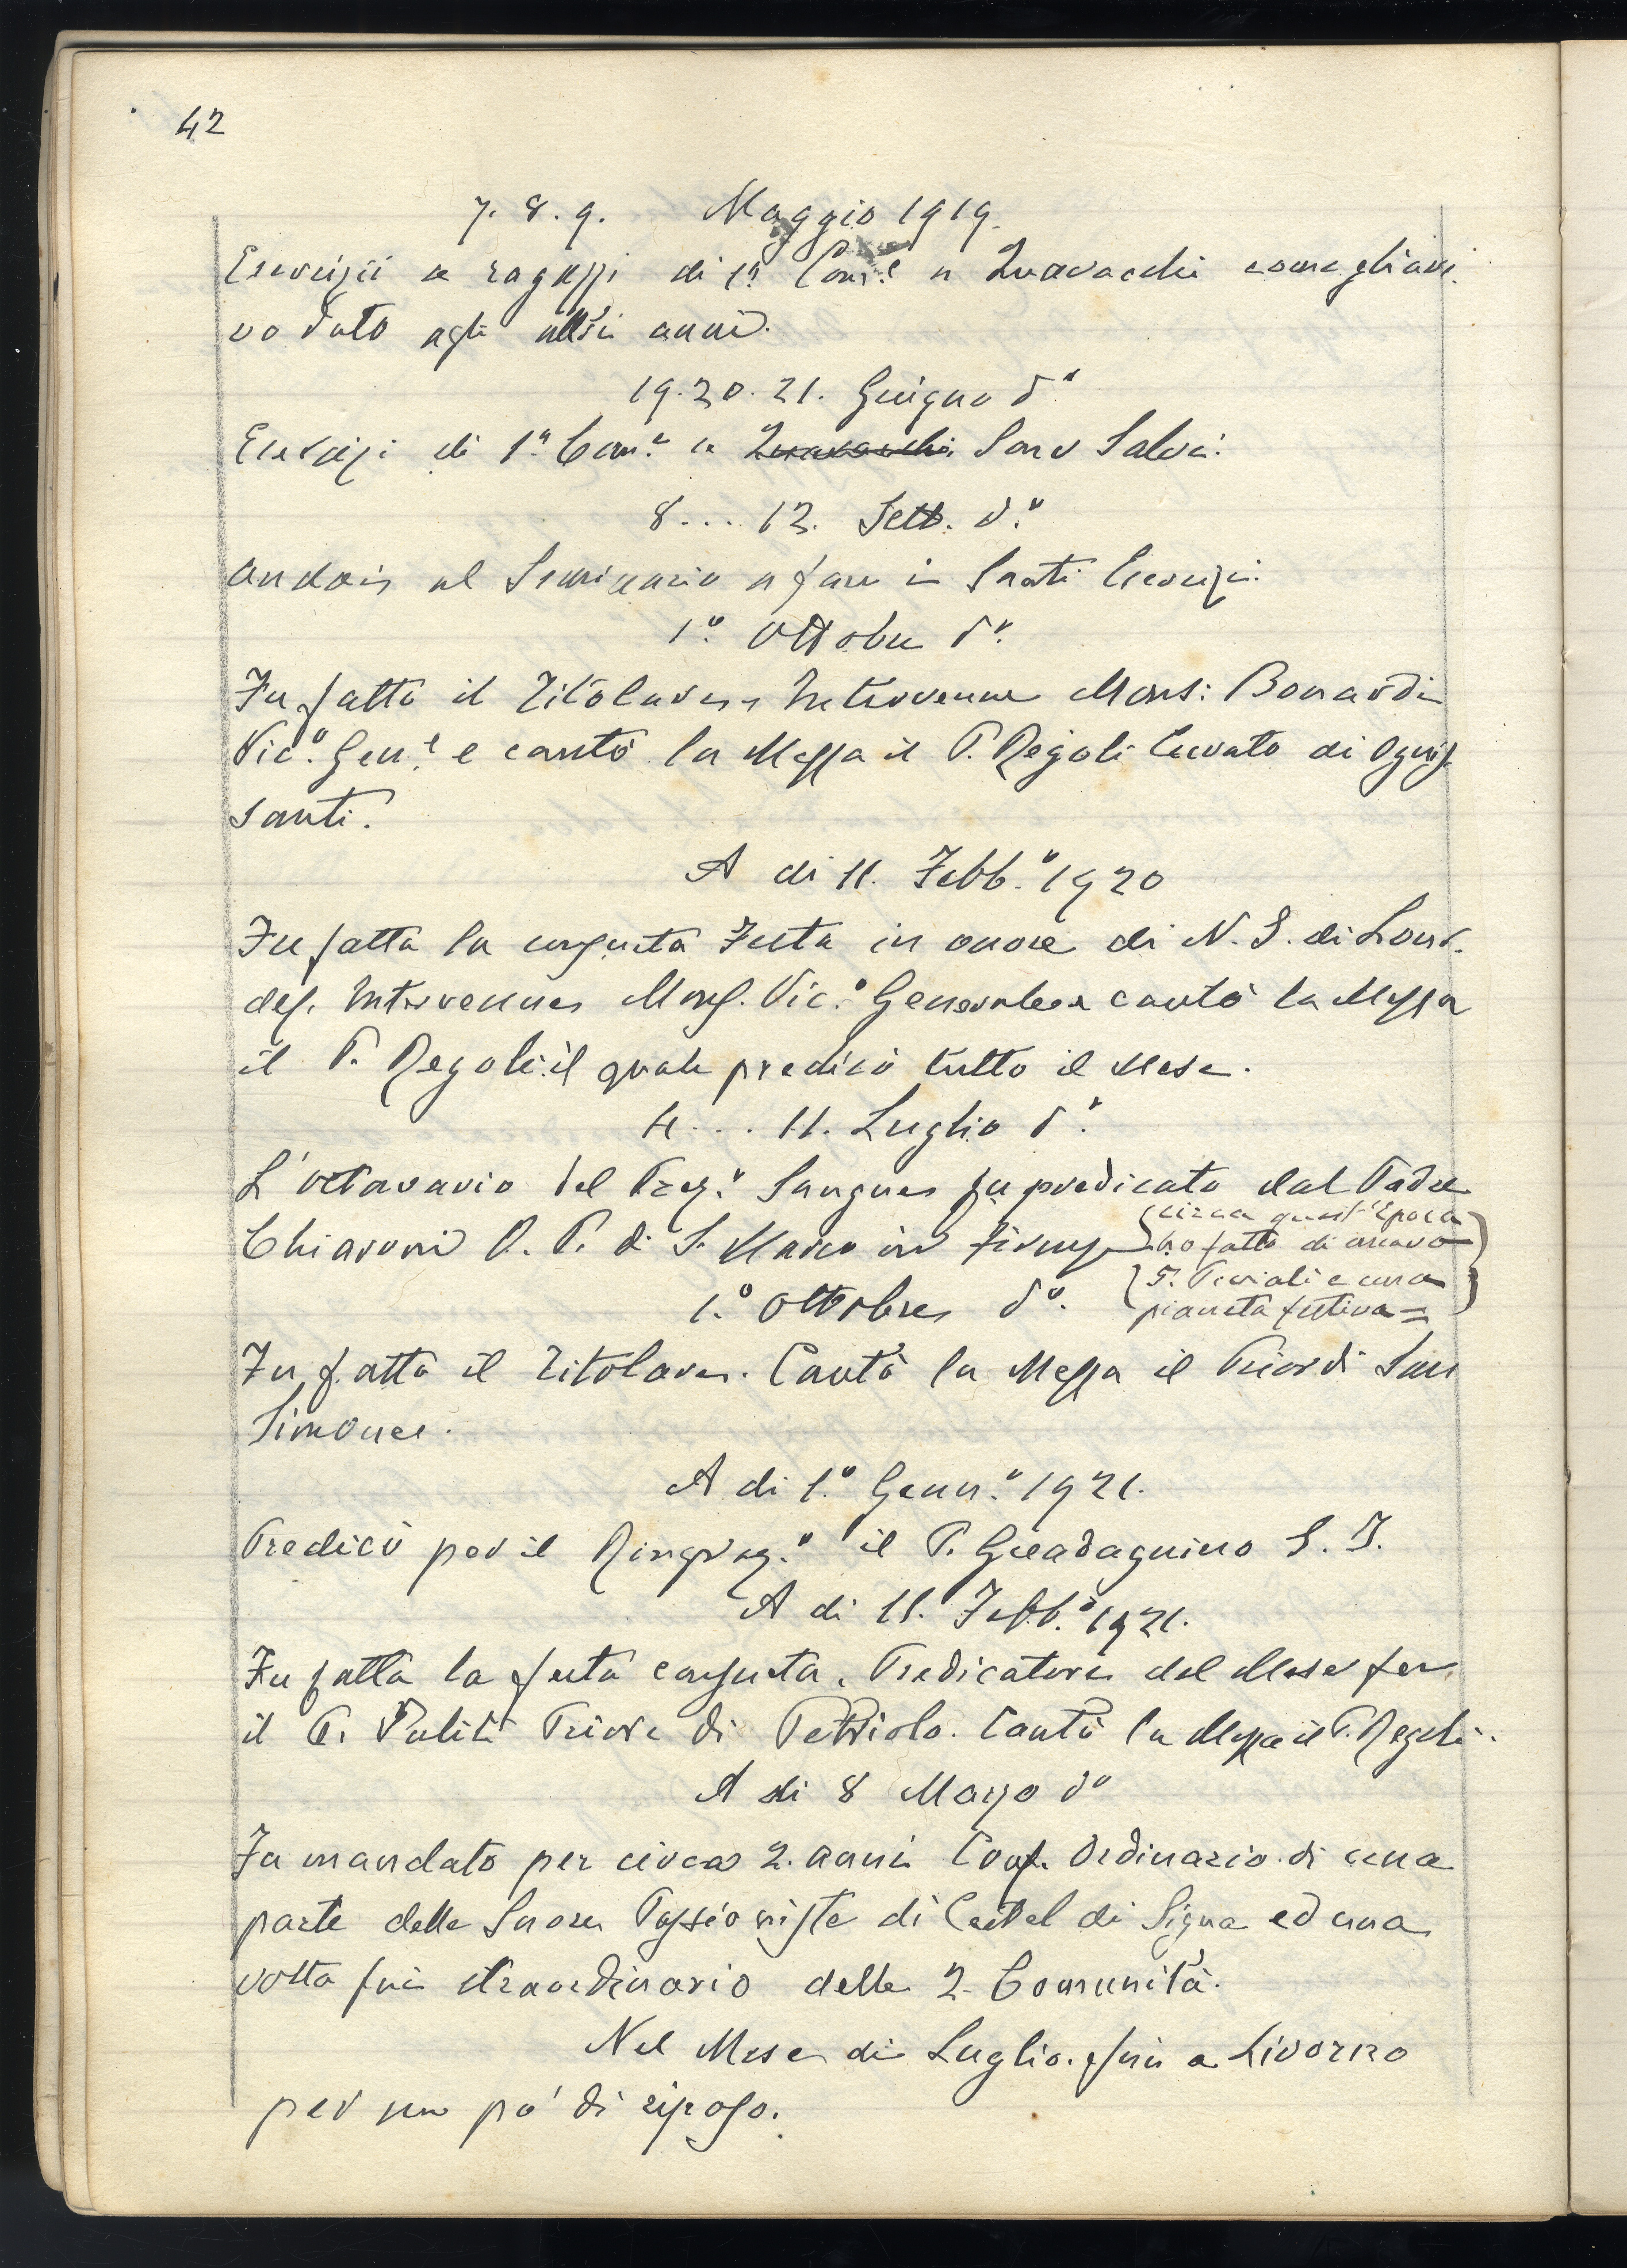 42
7. 8. 9. Maggio 1919.
Esercizii a ragazzi di 1ª Com.e a Quaracchi come gli ave
vo dato agli altri anni.
19. 20. 21. Giugno dº
Esercizi di 1ª Com.e a Quaracchi San Salvi.
8... 12. Sett. d.º
andai al Seminario a fare i Santi Esercizi.
1.º Ottobre dº.
Fu fatto il Titolare. Intervenne Mons: Bonardi
Vic.º Gen.e e cantò la Messa il P. Regoli Curato di Ognis
santi.
A di 11. Febb.º 1920
Fu fatta la consueta Festa in onore di N. S. di Lour-
des. Intervenne Mons. Vic.º Generale e cantò la Messa
il P. Regoli il quale predicò tutto il Mese.
4... 11. Luglio dº.
L'ottavario del Prez.º Sangue fu predicato dal Padre
Chiaroni O. P. di S. Marco in Firenze
(circa quest'Epoca
ho fatto di nuovo
5. Piviali e una
pianeta festiva=)
1.º Ottobre dº.
Fu fatto il Titolare. Cantò la Messa il Prior di San
Simone.
A di 1.º Genn.º 1921.
Predicò per il Ringraz.º il P. Guadagnino S. J.
A di 11. Febb.º 1921.
Fu fatta la festa consueta. Predicatore del Mese fu
il P. Puliti Priore di Petriolo. Cantò la Messa il P. Regoli.
A di 8 Marzo dº
Fu mandato per circa 2. anni Conf. Ordinario di una
parte delle Suore Passioniste di Castel di Signa ed una
volta fui straordinario delle 2. Comunità.
Nel Mese di Luglio. fui a Livorno
per un pò di riposo.